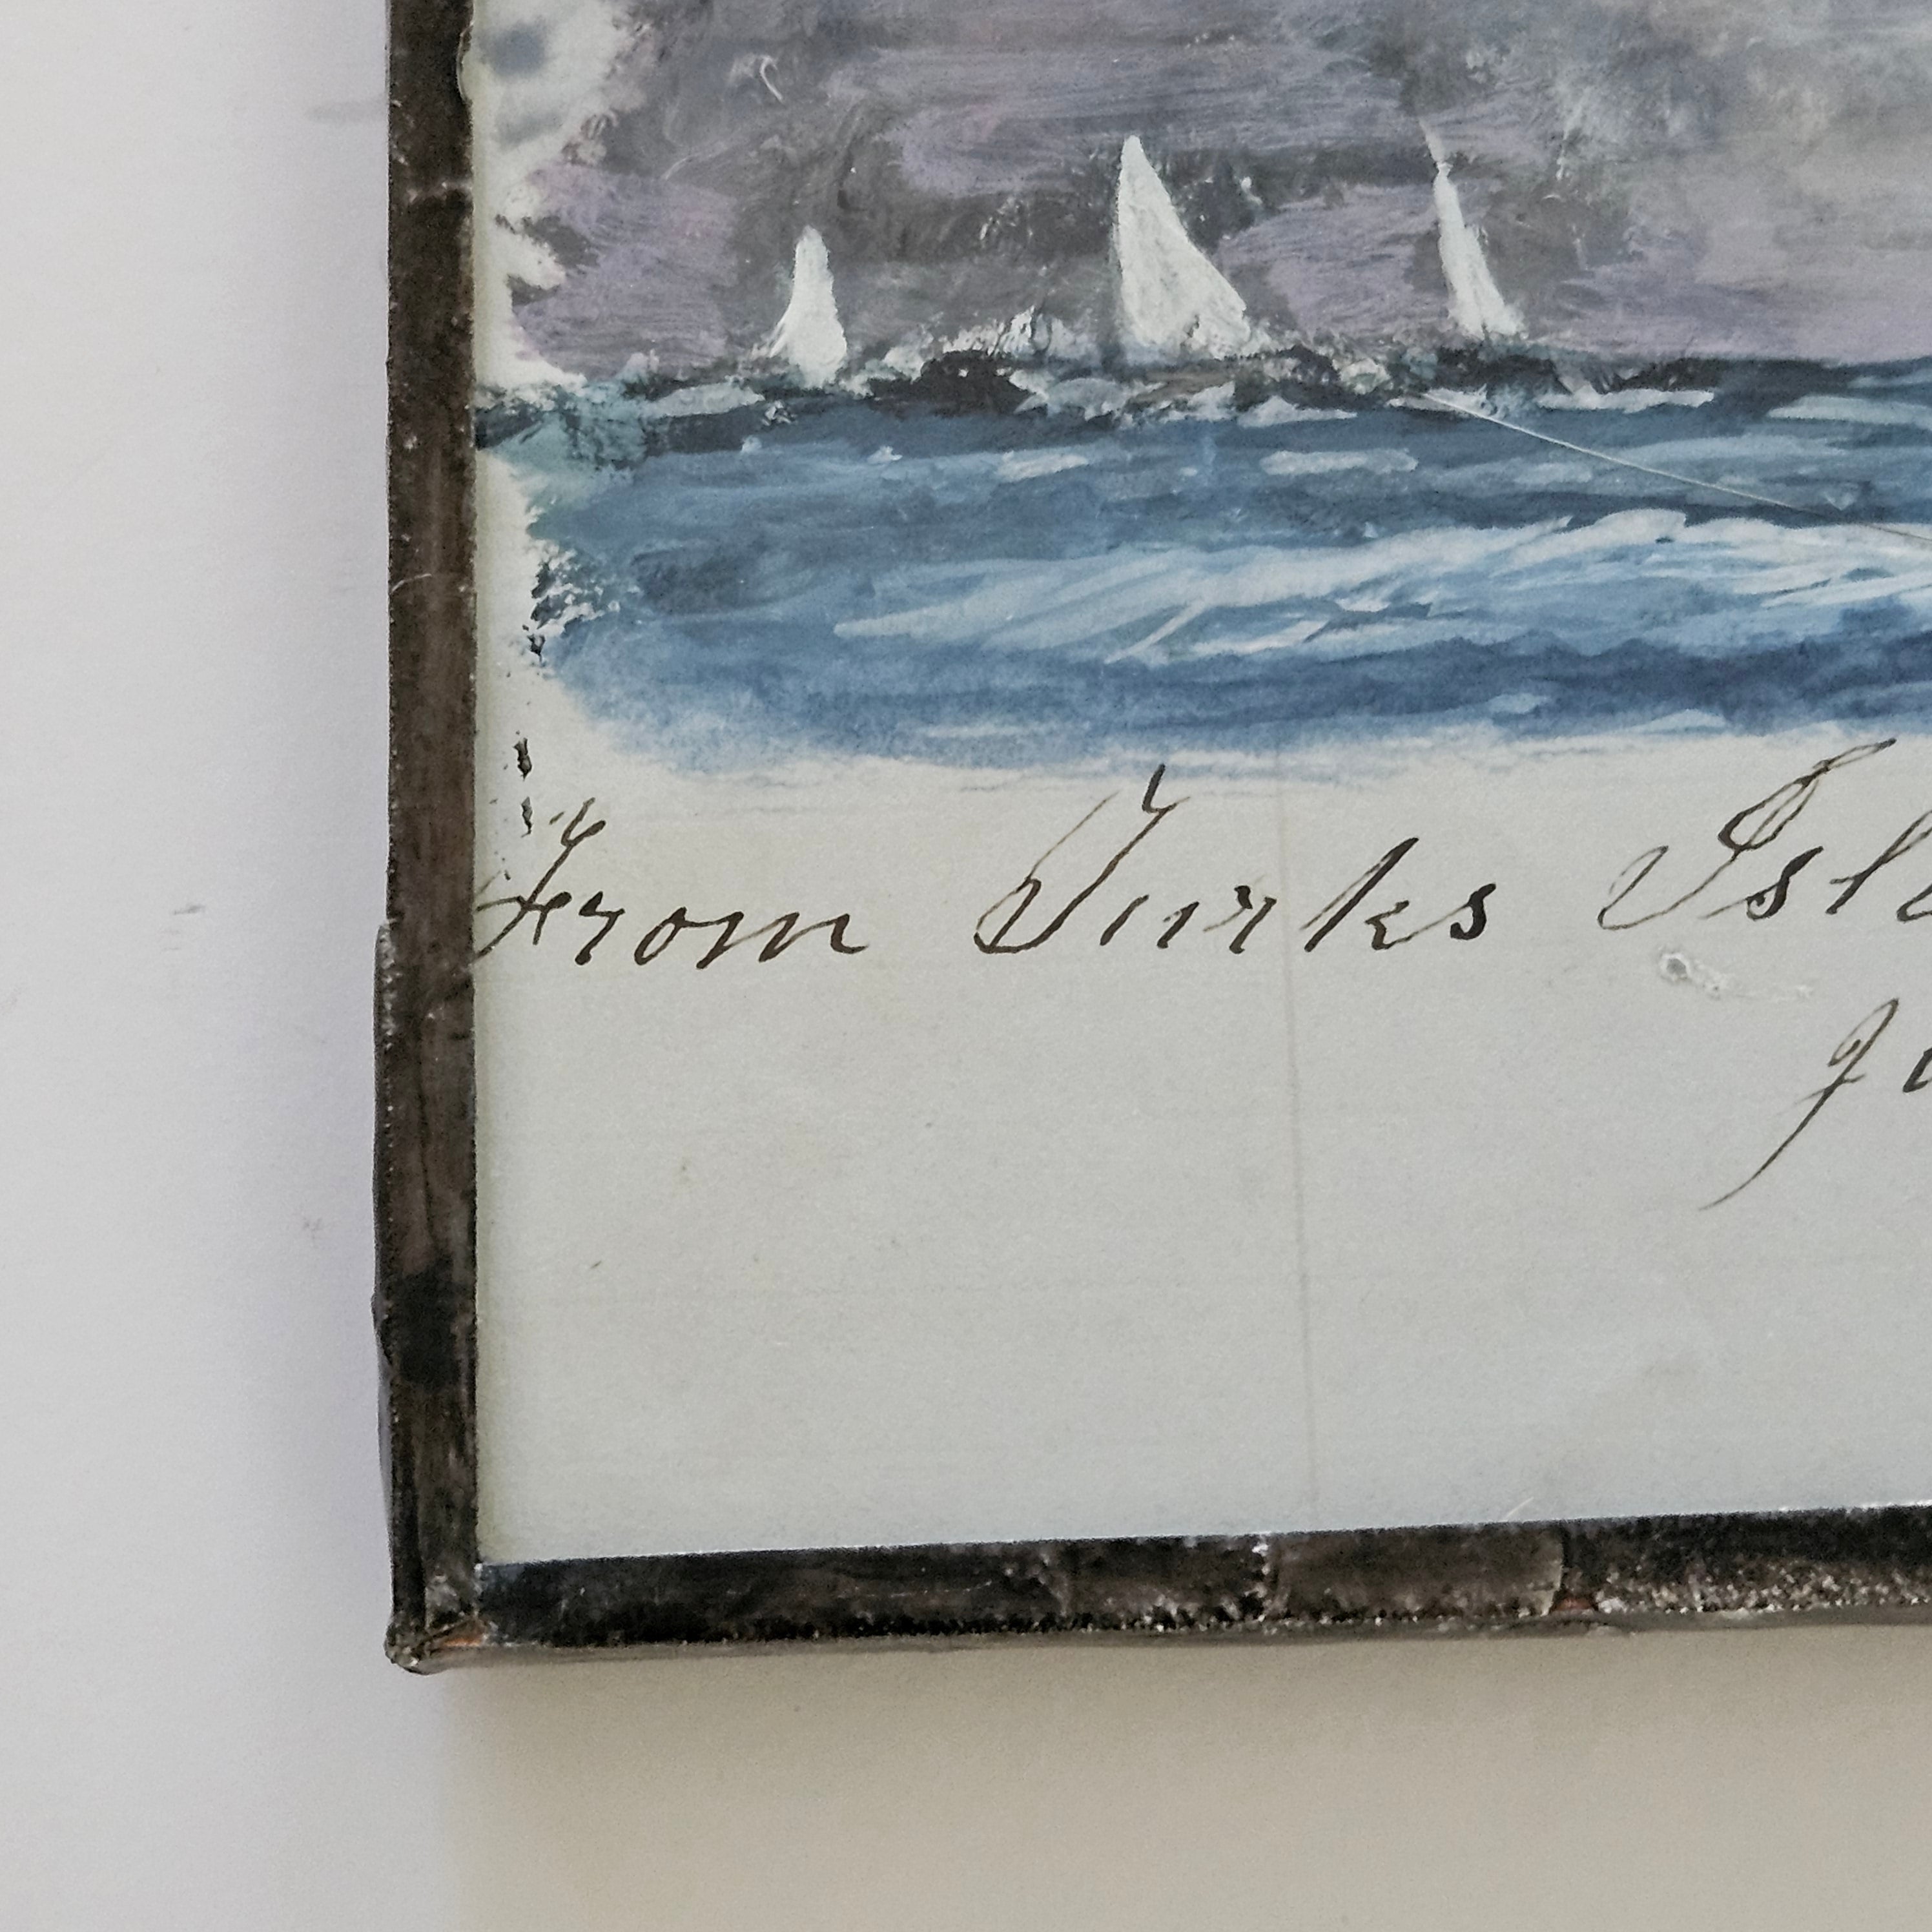 From Turks Isl
Jo